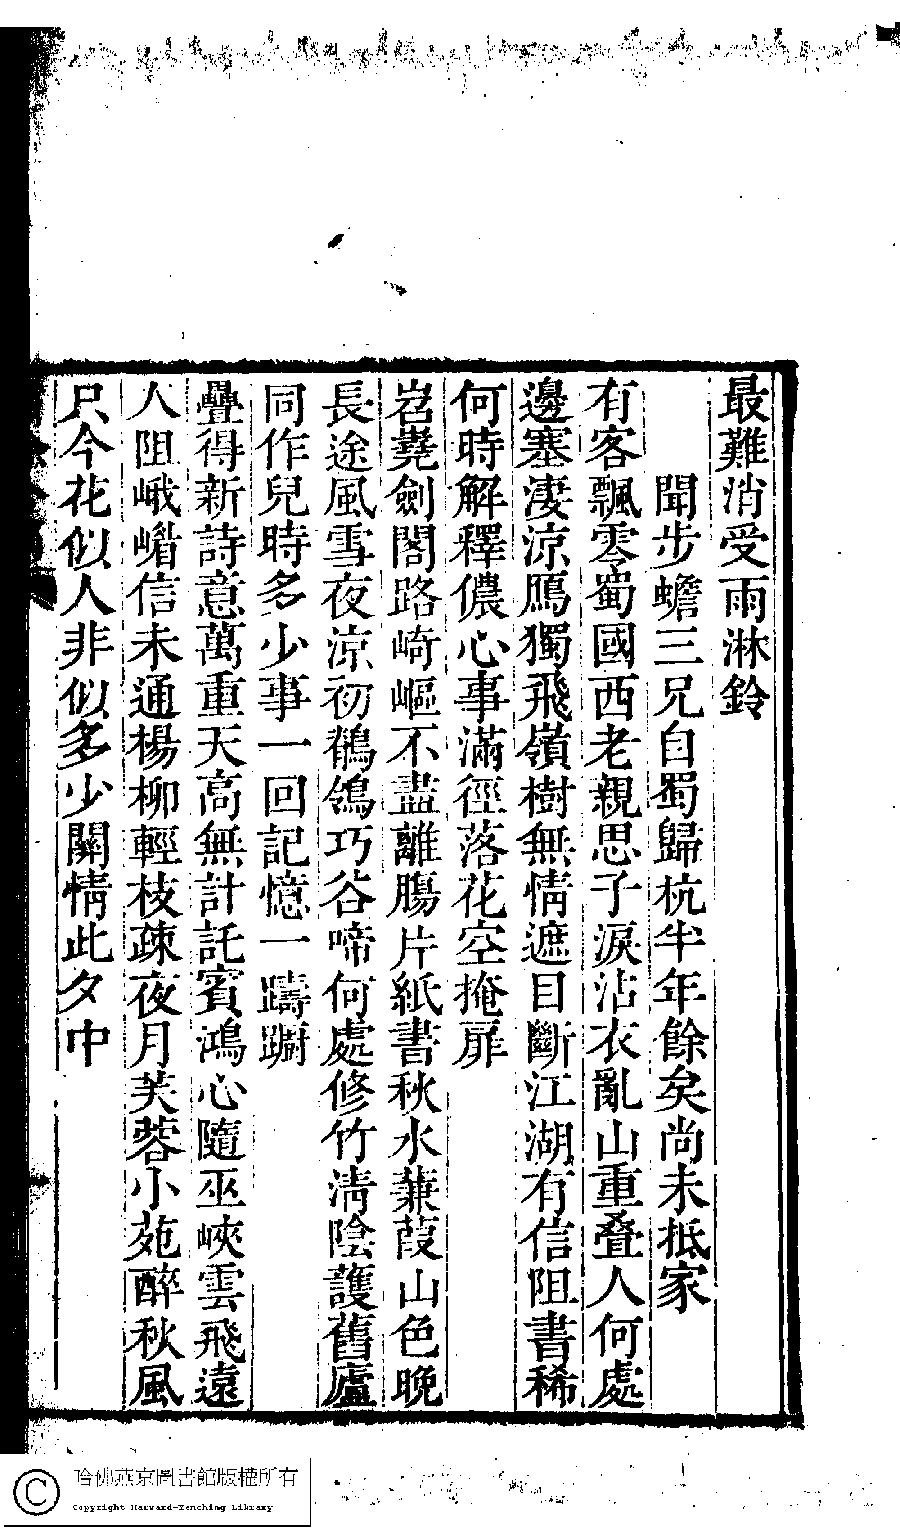 最難消受雨淋鈴
聞步蟾三兄自蜀歸杭半年餘矣尚未抵家
有客飄零蜀國西老親思子淚沾衣亂山重叠人何處
邊塞淒涼鴈獨飛嶺樹無情遮目斷江湖有信阻書稀
何時解釋儂心事滿徑落花空掩扉
岧嶤劍閣路崎嶇不盡離腸片紙書秋水蒹葭山色晚
長途風雪夜涼初鶺鴒巧谷啼何處修竹清陰護舊廬
同作兒時多少事一回記憶一躊躕
疊得新詩意萬重天高無計託賓鴻心隨巫峽雲飛遠
人阻峨嵋信未通楊柳輕枝疎夜月芙蓉小苑醉秋風
只今花似人非似多少關情此夕中
哈佛燕京圖書館版權所有
Copyright Harvard-Yenching Library